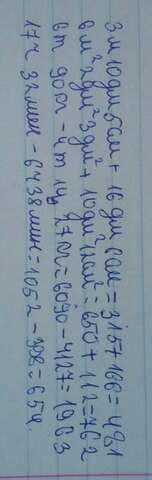 3 м 10 дм 5 см + 16 дм 6 см = 315 + 166 = 481
6 м² 2 дм² 3 дм² + 10 дм² 2 см² = 650 + 112 = 762
6 т 90 кг - 4 т 1 ц 27 кг = 6090 - 4127 = 1963
17 ч 32 мин - 6 ч 38 мин = 1052 - 398 = 654.